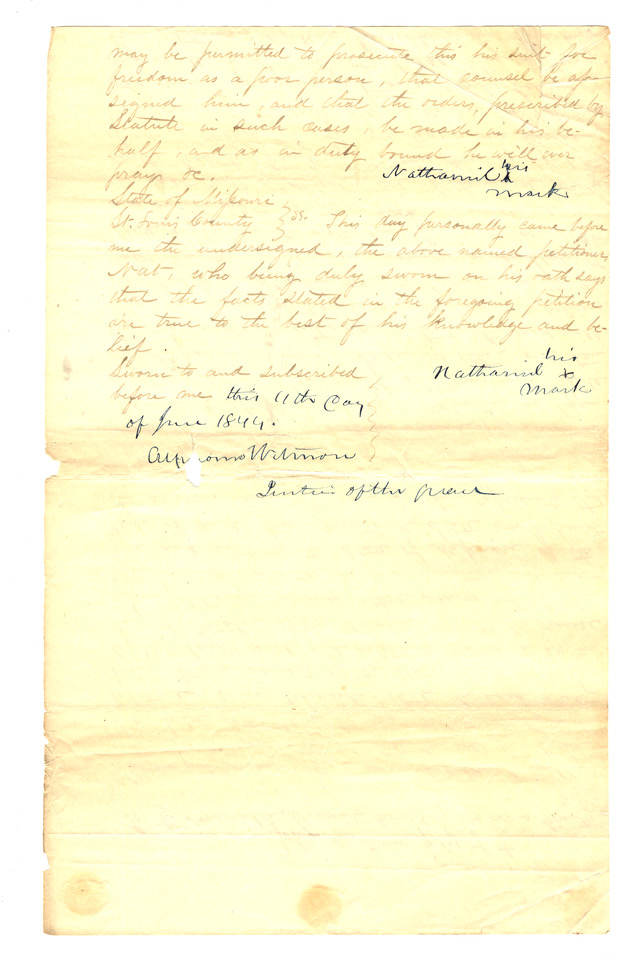 may be permitted to prosecute this his suit for
freedom as a poor person, that counsel be as-
signed him, and that the orders, prescribed by
Statute in such cases, be made in his be-
half, and as in duty bound he will ever
pray &c. Nathaniel his
x
mark
State of Missouri
St. Louis County } ss. This day personally came before
me the undersigned, the above named petitioner
Nat, who being duly sworn on his oath says
that the facts stated in the foregoing petition
are true to the best of his knowledge and be-
lief.
Sworn to and subscribed
before me this 11th Day
of June 1844.
his
Nathaniel x
mark
Justice of the peace